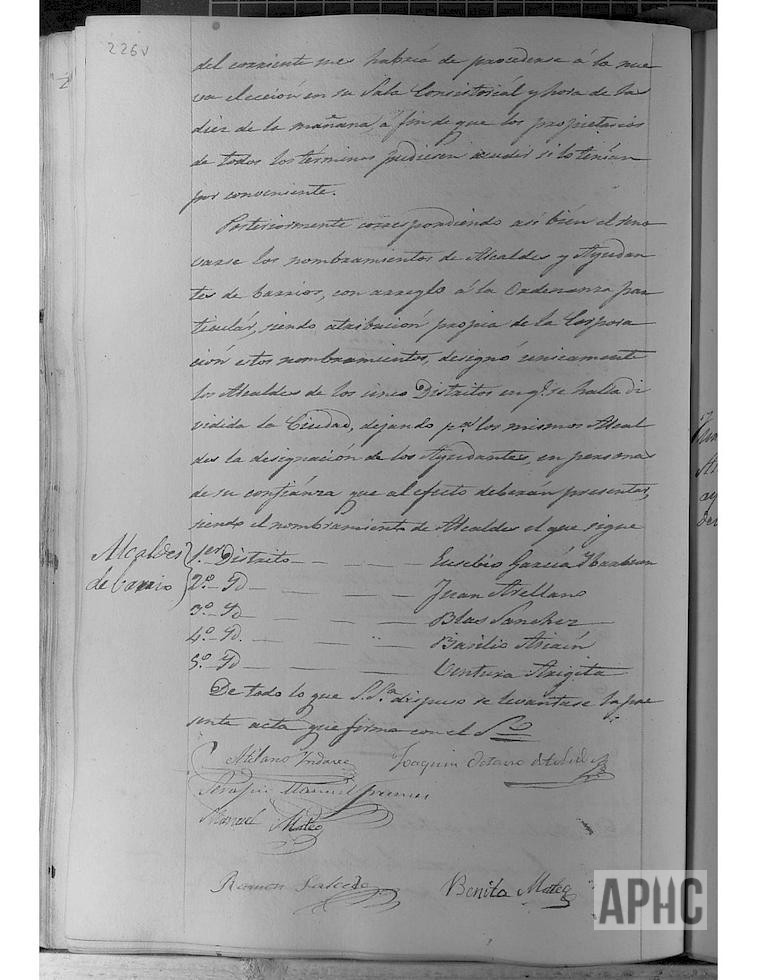 226v
del corriente mes habría de procederse á la nue
va elección en su Sala Consistoriál y hora de las
diez de la mañana, á fin de que los propietarios
de todos los términos pudiesen acudir si lo tenían
por conveniente.
Posteriormente correspondiendo así bien el reno
varse los nombramientos de Alcaldes y Ayudan
tes de barrios, con arreglo á la Ordenanza par
ticulár, siendo atribución propia de la Corpora
ción estos nombramientos, designó unicamente
los Alcaldes de los cinco Distritos en q.e se halla di
vidida la Ciudad, dejando pa. los mismos Alcal
des la designación de los Ayudantes, en personas
de su confiánza que al efecto deberán presentar,
siendo el nombramiento de Alcaldes el que sigue
Alcaldes
de barrio
1.er Distrito Eusebio García
2.º Yd Juan Arellano
3.º Yd Blas Sanchez
4.º Yd. Basilio Aricín
5.º Yd Ventura Arigita
De todo lo que S.Sa. dispuso se levantase la pre
sente acta que firma con el S.º
Atilano Joaquin Octavio de Toledo
Serafin Manuel
Manuel Mateo
Ramon Salcedo Benito Mateo
APHC